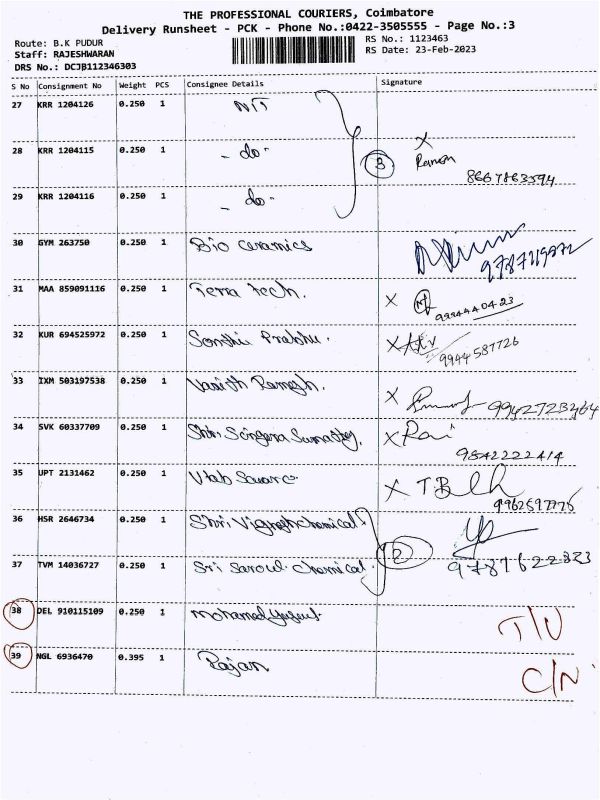 THE PROFESSIONAL COURIERS, Coimbatore
Delivery Runsheet - PCK - Phone No.:0422-3505555 - Page No.:3
Route: B.K PUDUR
RS No.: 1123463
Staff: RAJESHWARAN
RS Date: 23-Feb-2023
DRS No.: DCJB112346303
S No Consignment No Weight PCS Consignee Details Signature
27 KRR 1204126 0.250 1 NIT
28 KRR 1204115 0.250 1 - do - 3 X
8667863594
29 KRR 1204116 0.250 1 - do -
30 GYM 263750 0.250 1 Bio Ceramics
31 MAA 859091116 0.250 1 Terra Tech. X
9994440423
32 KUR 694525972 0.250 1 Prabhu. X
9944587726
33 IXM 503197538 0.250 1 Ramesh. X
34 SVK 60337709 0.250 1 X Rai
9842222414
35 UPT 2131462 0.250 1 X T.B
36 HSR 2646734 0.250 1 Shri Vignesh chemical
37 TVM 14036727 0.250 1 Sri chemical. 2
38 DEL 910115109 0.250 1 Mohamed
39 NGL 6936470 0.395 1 Rajan C/N